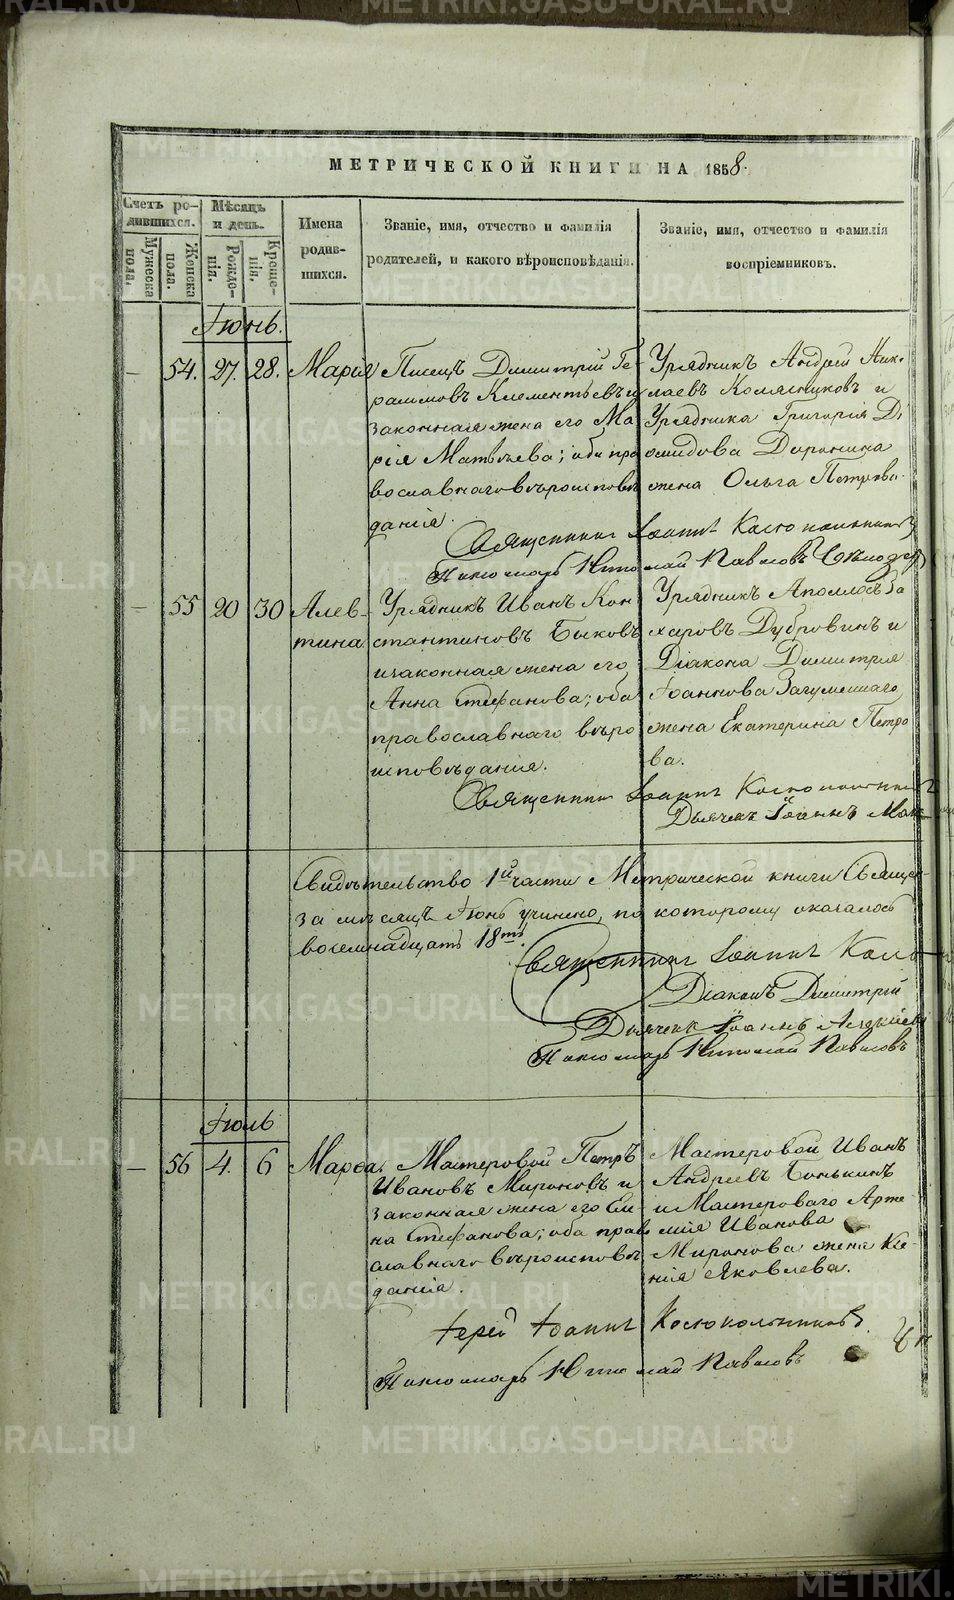 МЕТРИЧЕСКОЙ КНИГИ НА 1858.
Счетъ ро-
дившихся.
Мужеска
пола.
Женска
пола.
Мѣсяцъ
и день.
Рожде-
нія.
Креще-
нія.
Имена
родив-
шихся.
Званіе, имя, отчество и фамилія
родителей, и какого вѣроисповѣданія.
Званіе, имя, отчество и фамилія
воспріемниковъ.
Іюнь.
— 54. 27. 28. Марія
Писецъ Димитрій Ге-
расимовъ Клементьевъ и
законная жена его Ма
рія Матвѣева; оба пра
вославнаго вѣроисповѣ
данія.
Урядникъ Андрей Ник-
лаевъ и
Урядника Григорія Ді
омидова Доронина
жена Ольга Петрова.
Священникъ Іоаннъ Костокольниковъ
Пономарь Николай Павловъ
— 55 20 30 Алев-
тина
Урядникъ Иванъ Кон
стантиновъ Быковъ
и законная жена его
Анна Стефанова; оба
православнаго вѣро
исповѣданія.
Урядникъ Аполлосъ За
харовъ Дубровинъ и
Діакона Димитрія
Іоаннова Загуменнаго,
жена Екатерина Петро
ва.
Священникъ Іоаннъ
Дьячекъ Іоаннъ
Свидѣтельство 1й части Метрической книги
за мѣсяцъ Іюнь учинено, по которому оказалось
восемнадцать 18ть.
Священникъ Іоаннъ
Діаконъ Димитрій
Дьячекъ Іоаннъ
Пономарь Николай Павловъ
Іюль
— 56 4. 6 Марѳа.
Мастеровой Петръ
Ивановъ Мироновъ и
законная жена его Еле
на Стефанова; оба право
славнаго вѣроисповѣ
данія.
Мастеровой Иванъ
Андреевъ Бонькинъ
и Мастероваго Арте
мія Иванова
Миронова жена Ксе-
нія Яковлева.
Іерей Іоаннъ Костокольниковъ.
Пономарь Николай Павловъ
METRIKI.GASO-URAL.RU